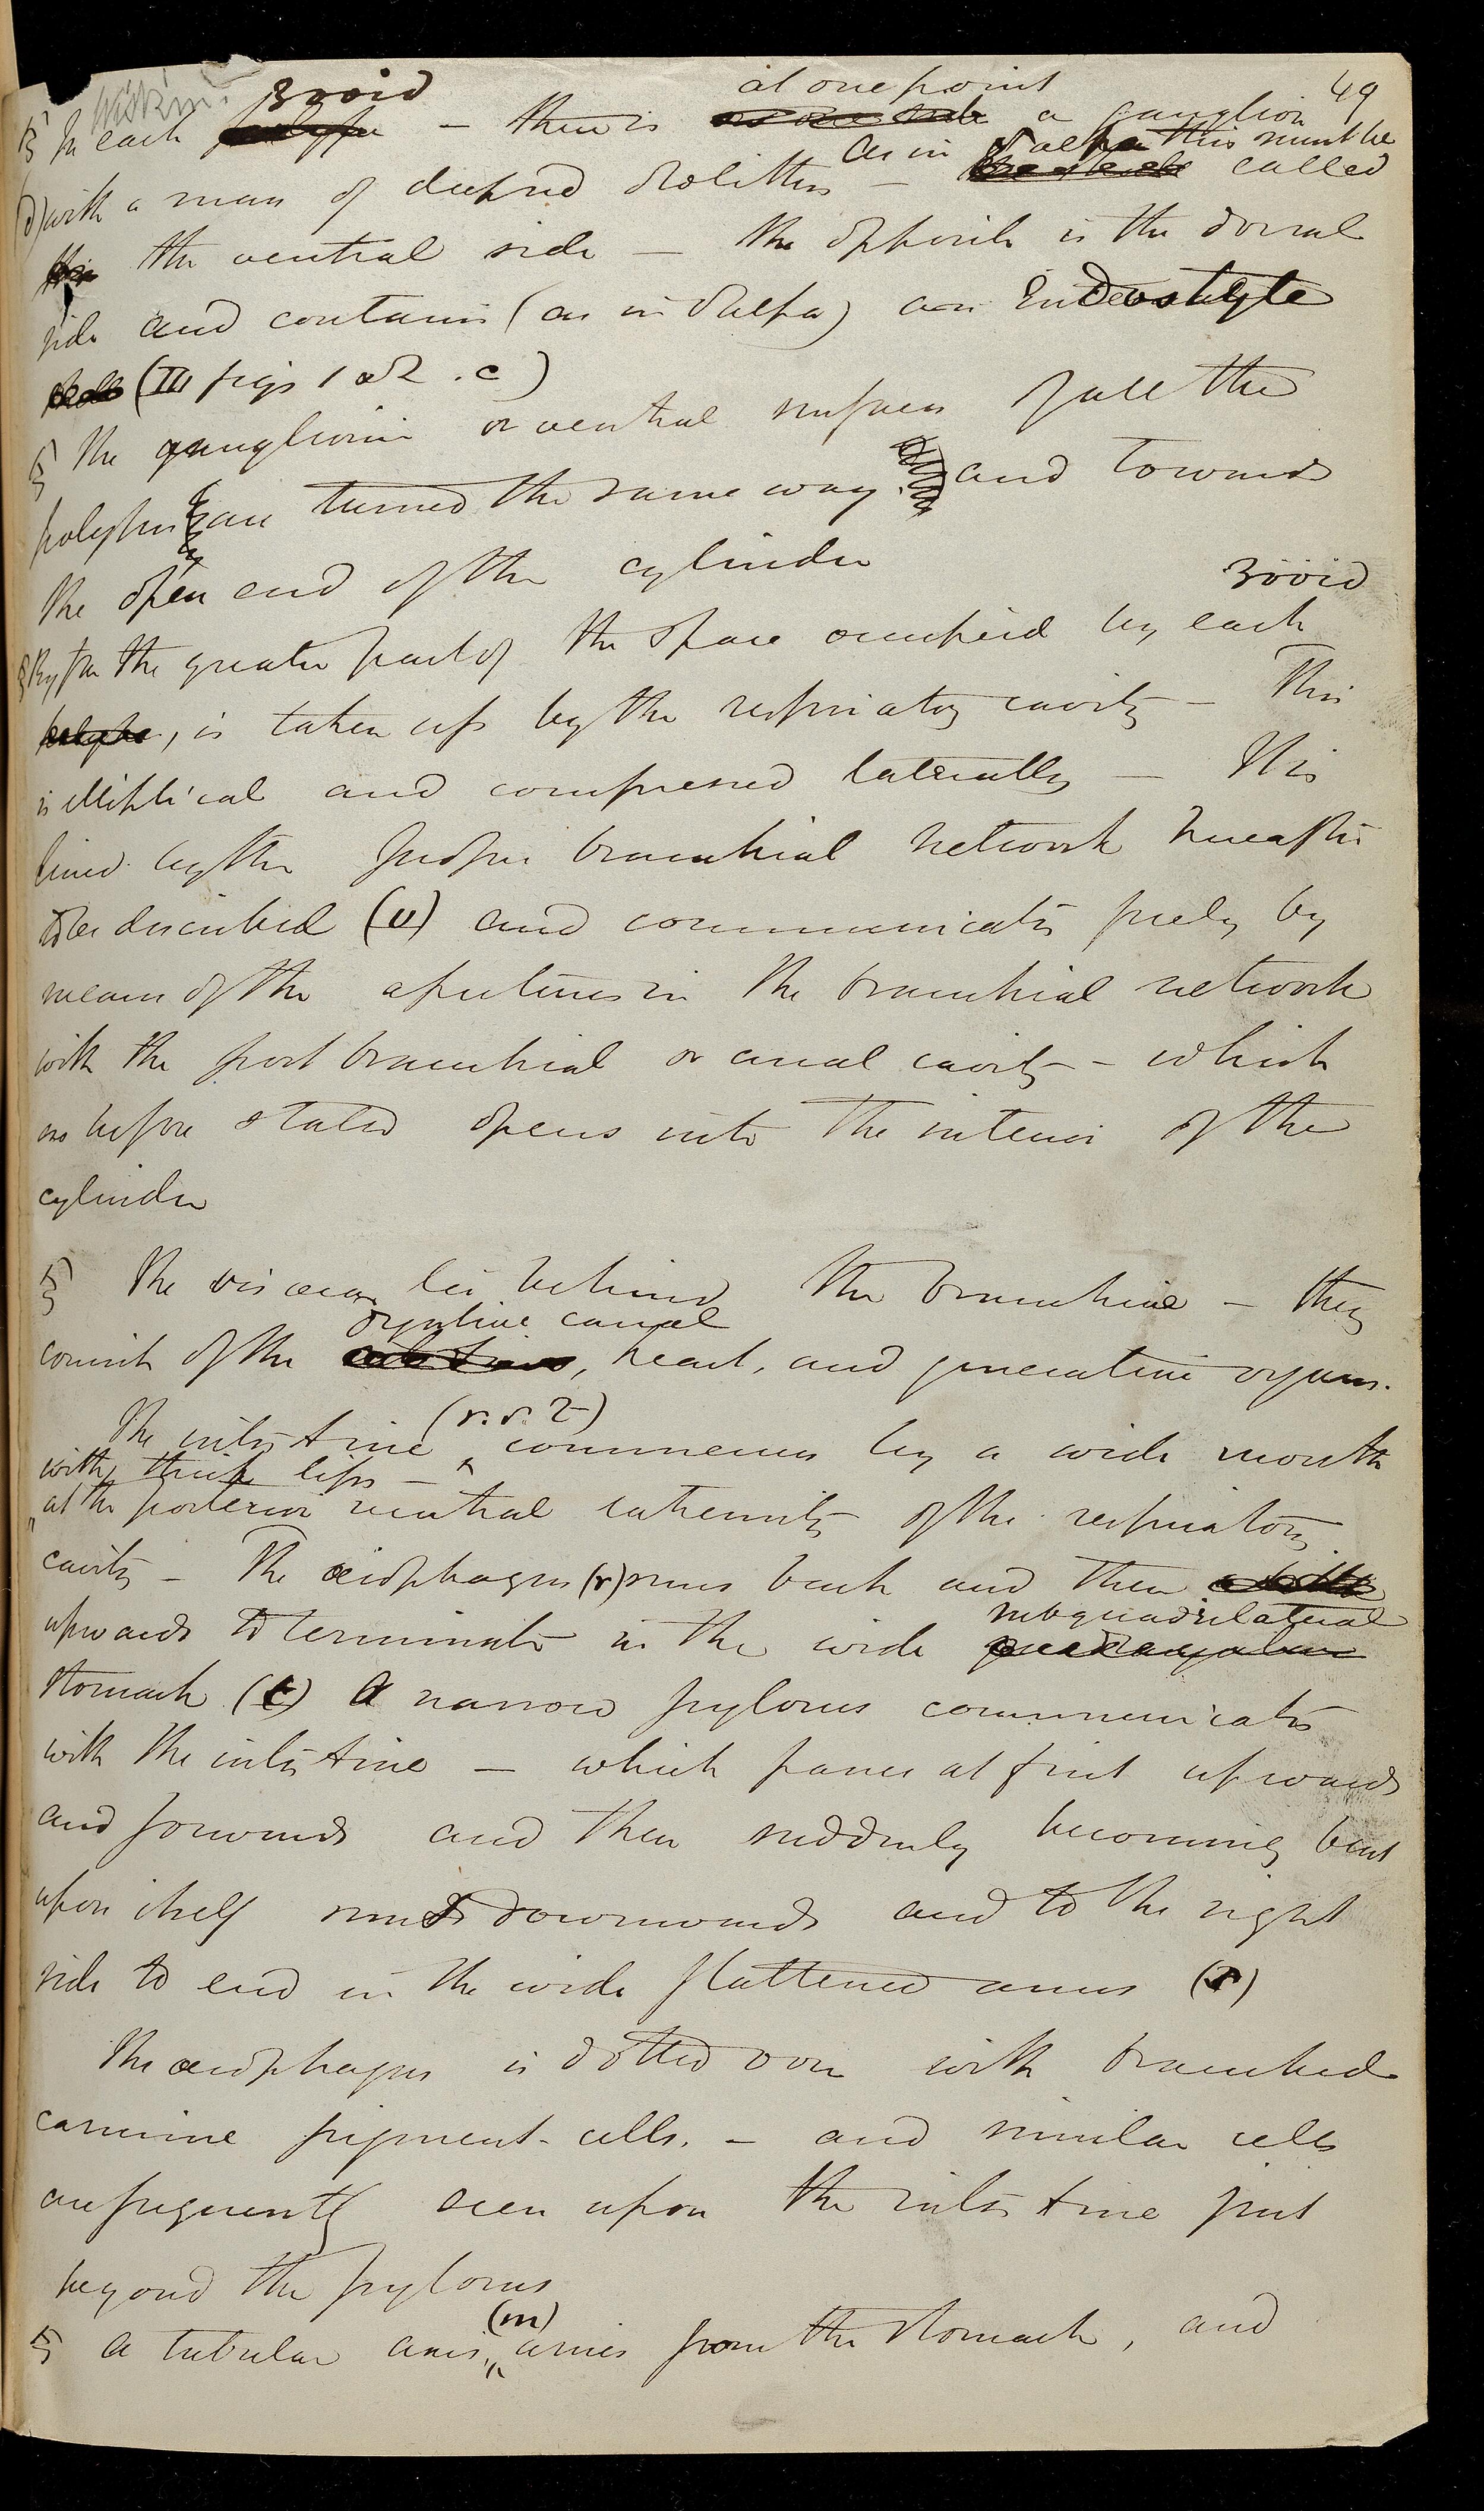 49
zooid at one point
In each polype — there is on one side a ganglion
As in Salpa this must be
(d) with a mass of deep red otoliths — called
this the ventral side — the opposite is the dorsal
side and contains (as in Salpa) an Endostyle
(III figs 1 & 2 . c)
The ganglionic or ventral surfaces of all the
polypes are turned the same way and towards
the open end of the cylinder
zooid
By far the greater part of the space occupied by each
polype, is taken up by the respiratory cavity — This
is elliptical and compressed laterally — It is
lined by the branchial network hereafter
to be described (v) and communicates freely by
means of the apertures in the branchial network
with the post branchial or anal cavity — which
as before stated opens into the interior of the
cylinder
The viscera lie behind the branchiae — they
digestive canal
consist of the intestines, heart, and generative organs.
(r. s. t)
The intestine commences by a wide mouth
with thick lips —
at the posterior neutral extremity of the respiratory
cavity — The œsophagus (r) runs back and then
subquadrilateral
upwards to terminate in the wide quadrangular
stomach (t) A narrow pylorus communicates
with the intestine — which passes at first upwards
and forwards and then suddenly becoming bent
upon itself runs downwards and to the right
side to end in the wide flattened anus
The œsophagus is dotted over with branched
carmine pigment-cells. — and similar cells
are frequently seen upon the intestine just
beyond the pylorus
(m)
A tubular axis, arises from the stomach, and